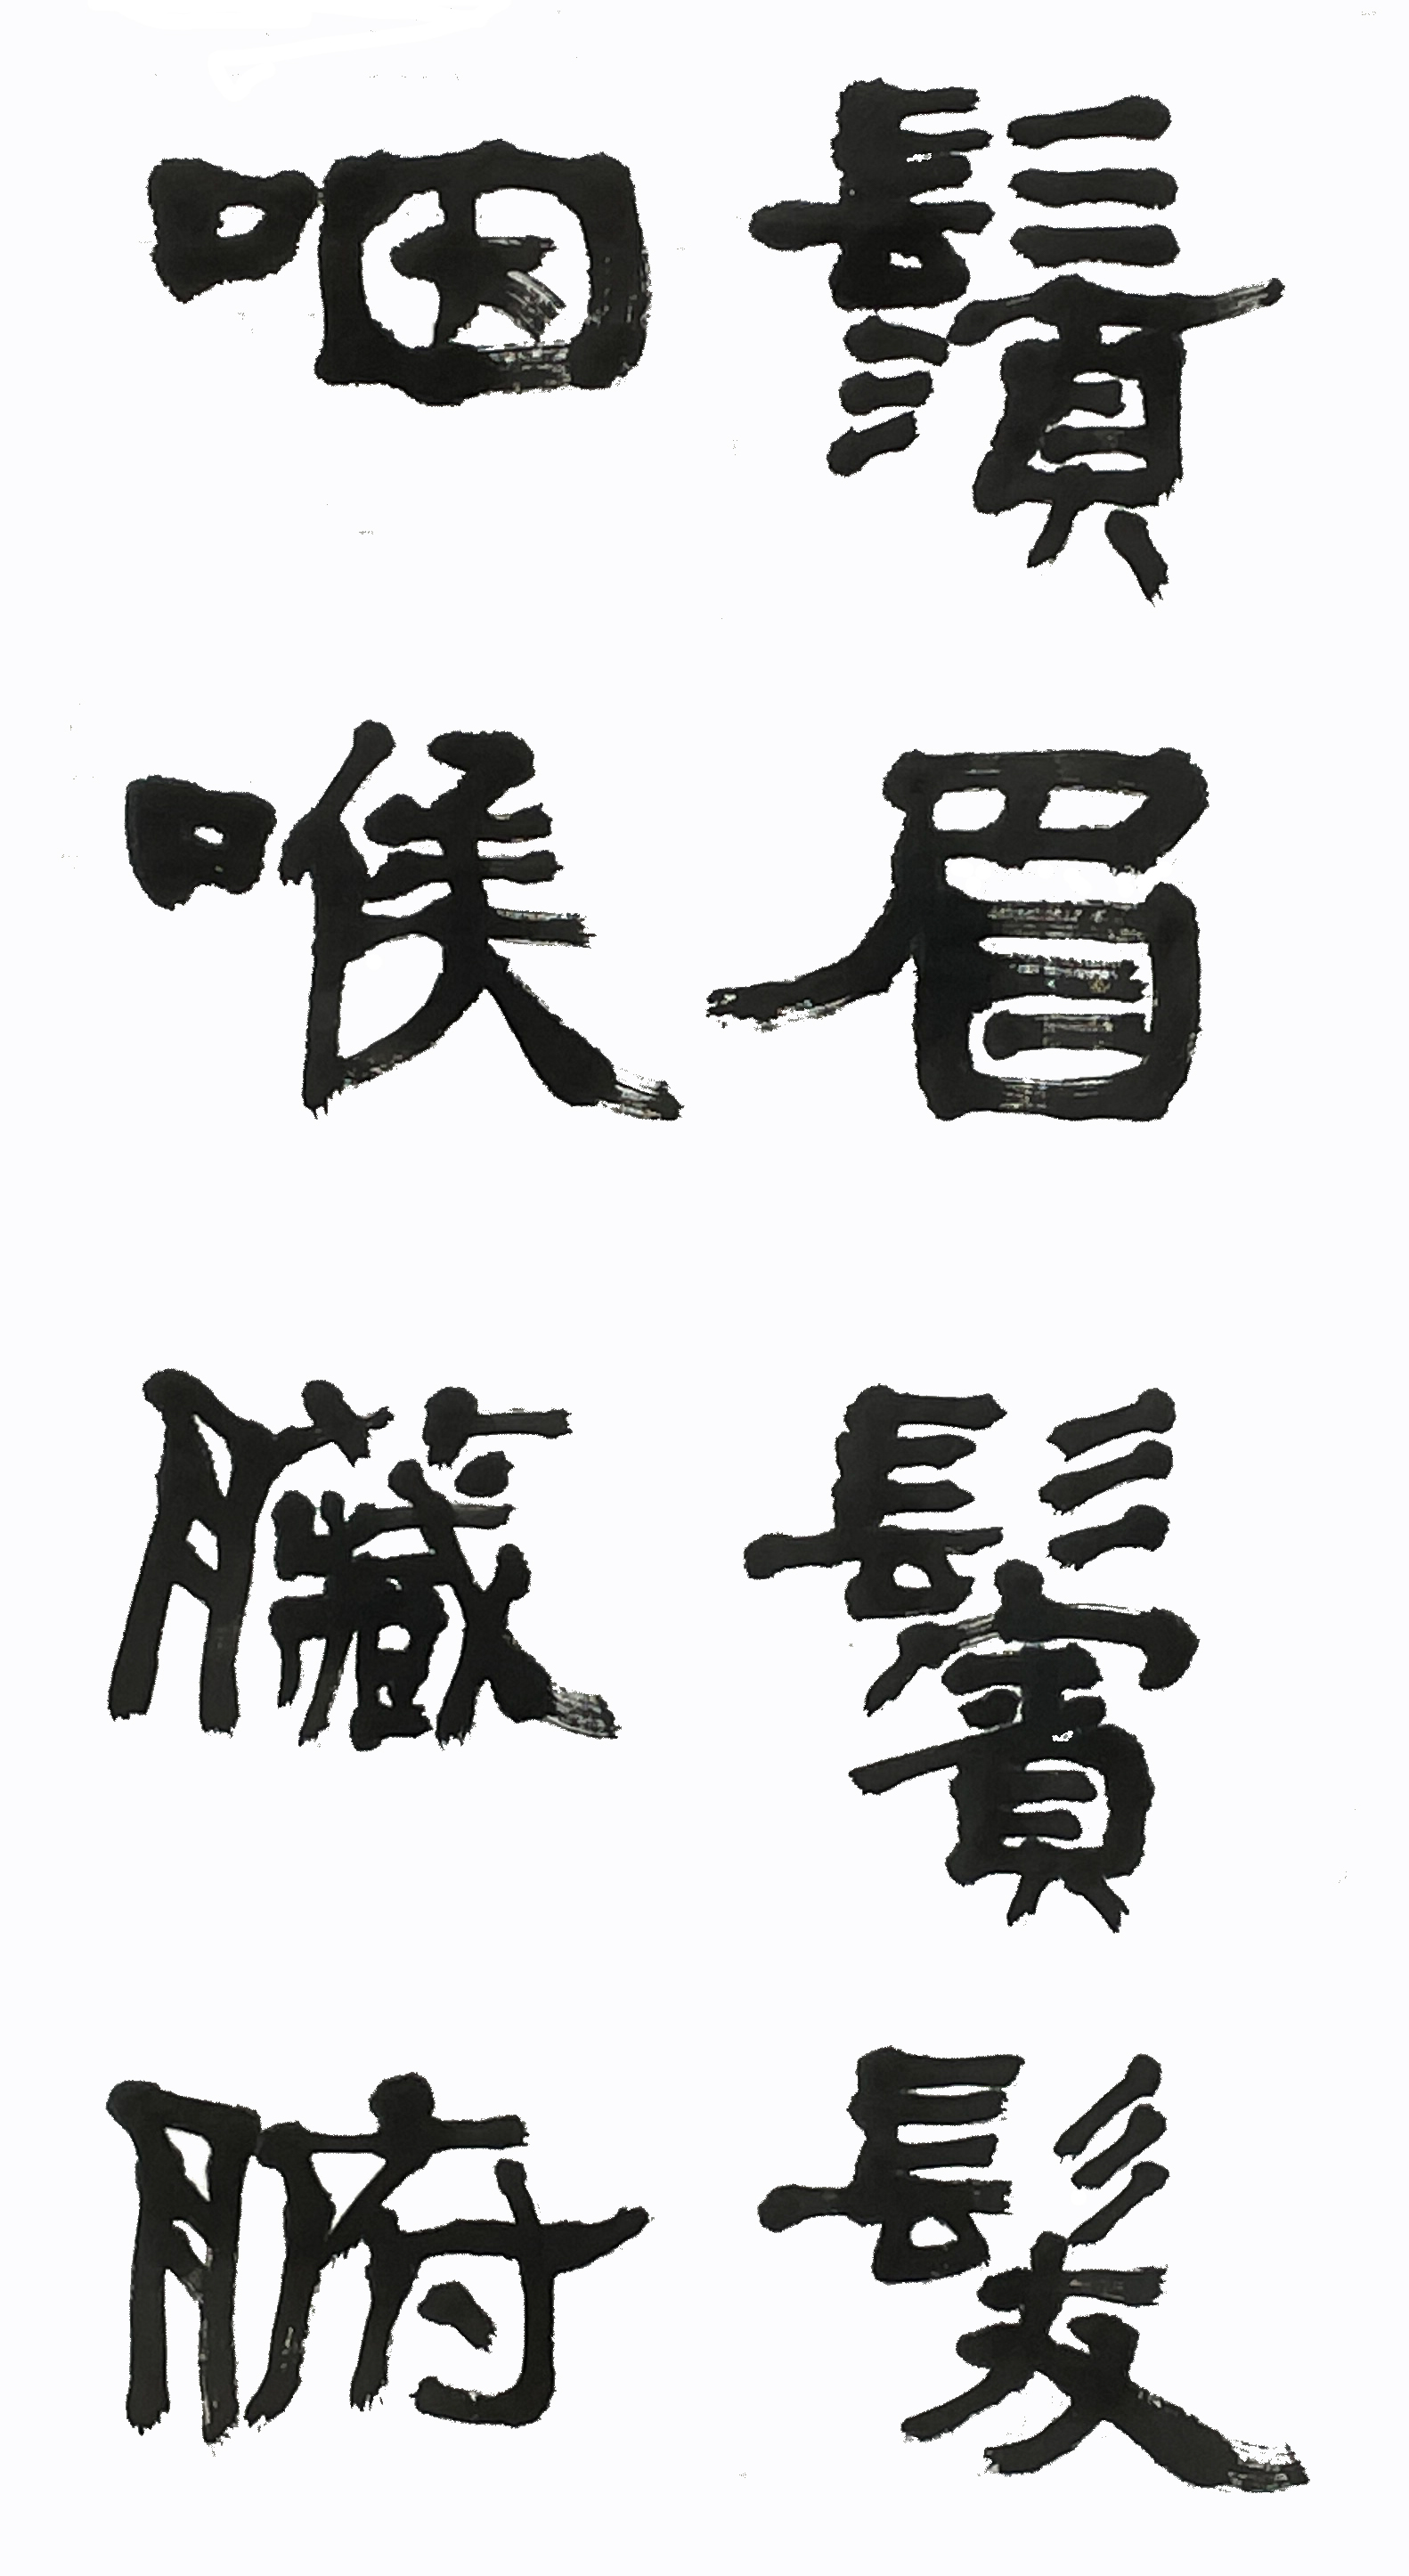 鬚眉鬢髮
咽喉臟腑